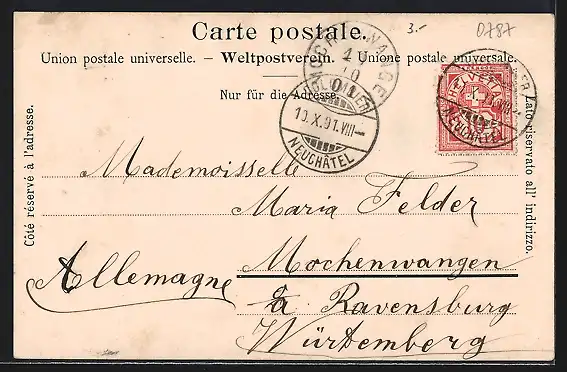 Carte postale.
3.-
0787
Union postale universelle. – Weltpostverein. – Unione postale universale.
Nur für die Adresse.
COLOMBIER
10.X.01.VIII–
NEUCHÂTEL
HELVETIA
NEUCHÂTEL
Côté réservé à l'adresse.
Lato riservato all' indirizzo.
Mademoisselle
Maria Felder
Mochenwangen
Allemagne
a Ravensburg
Würtemberg